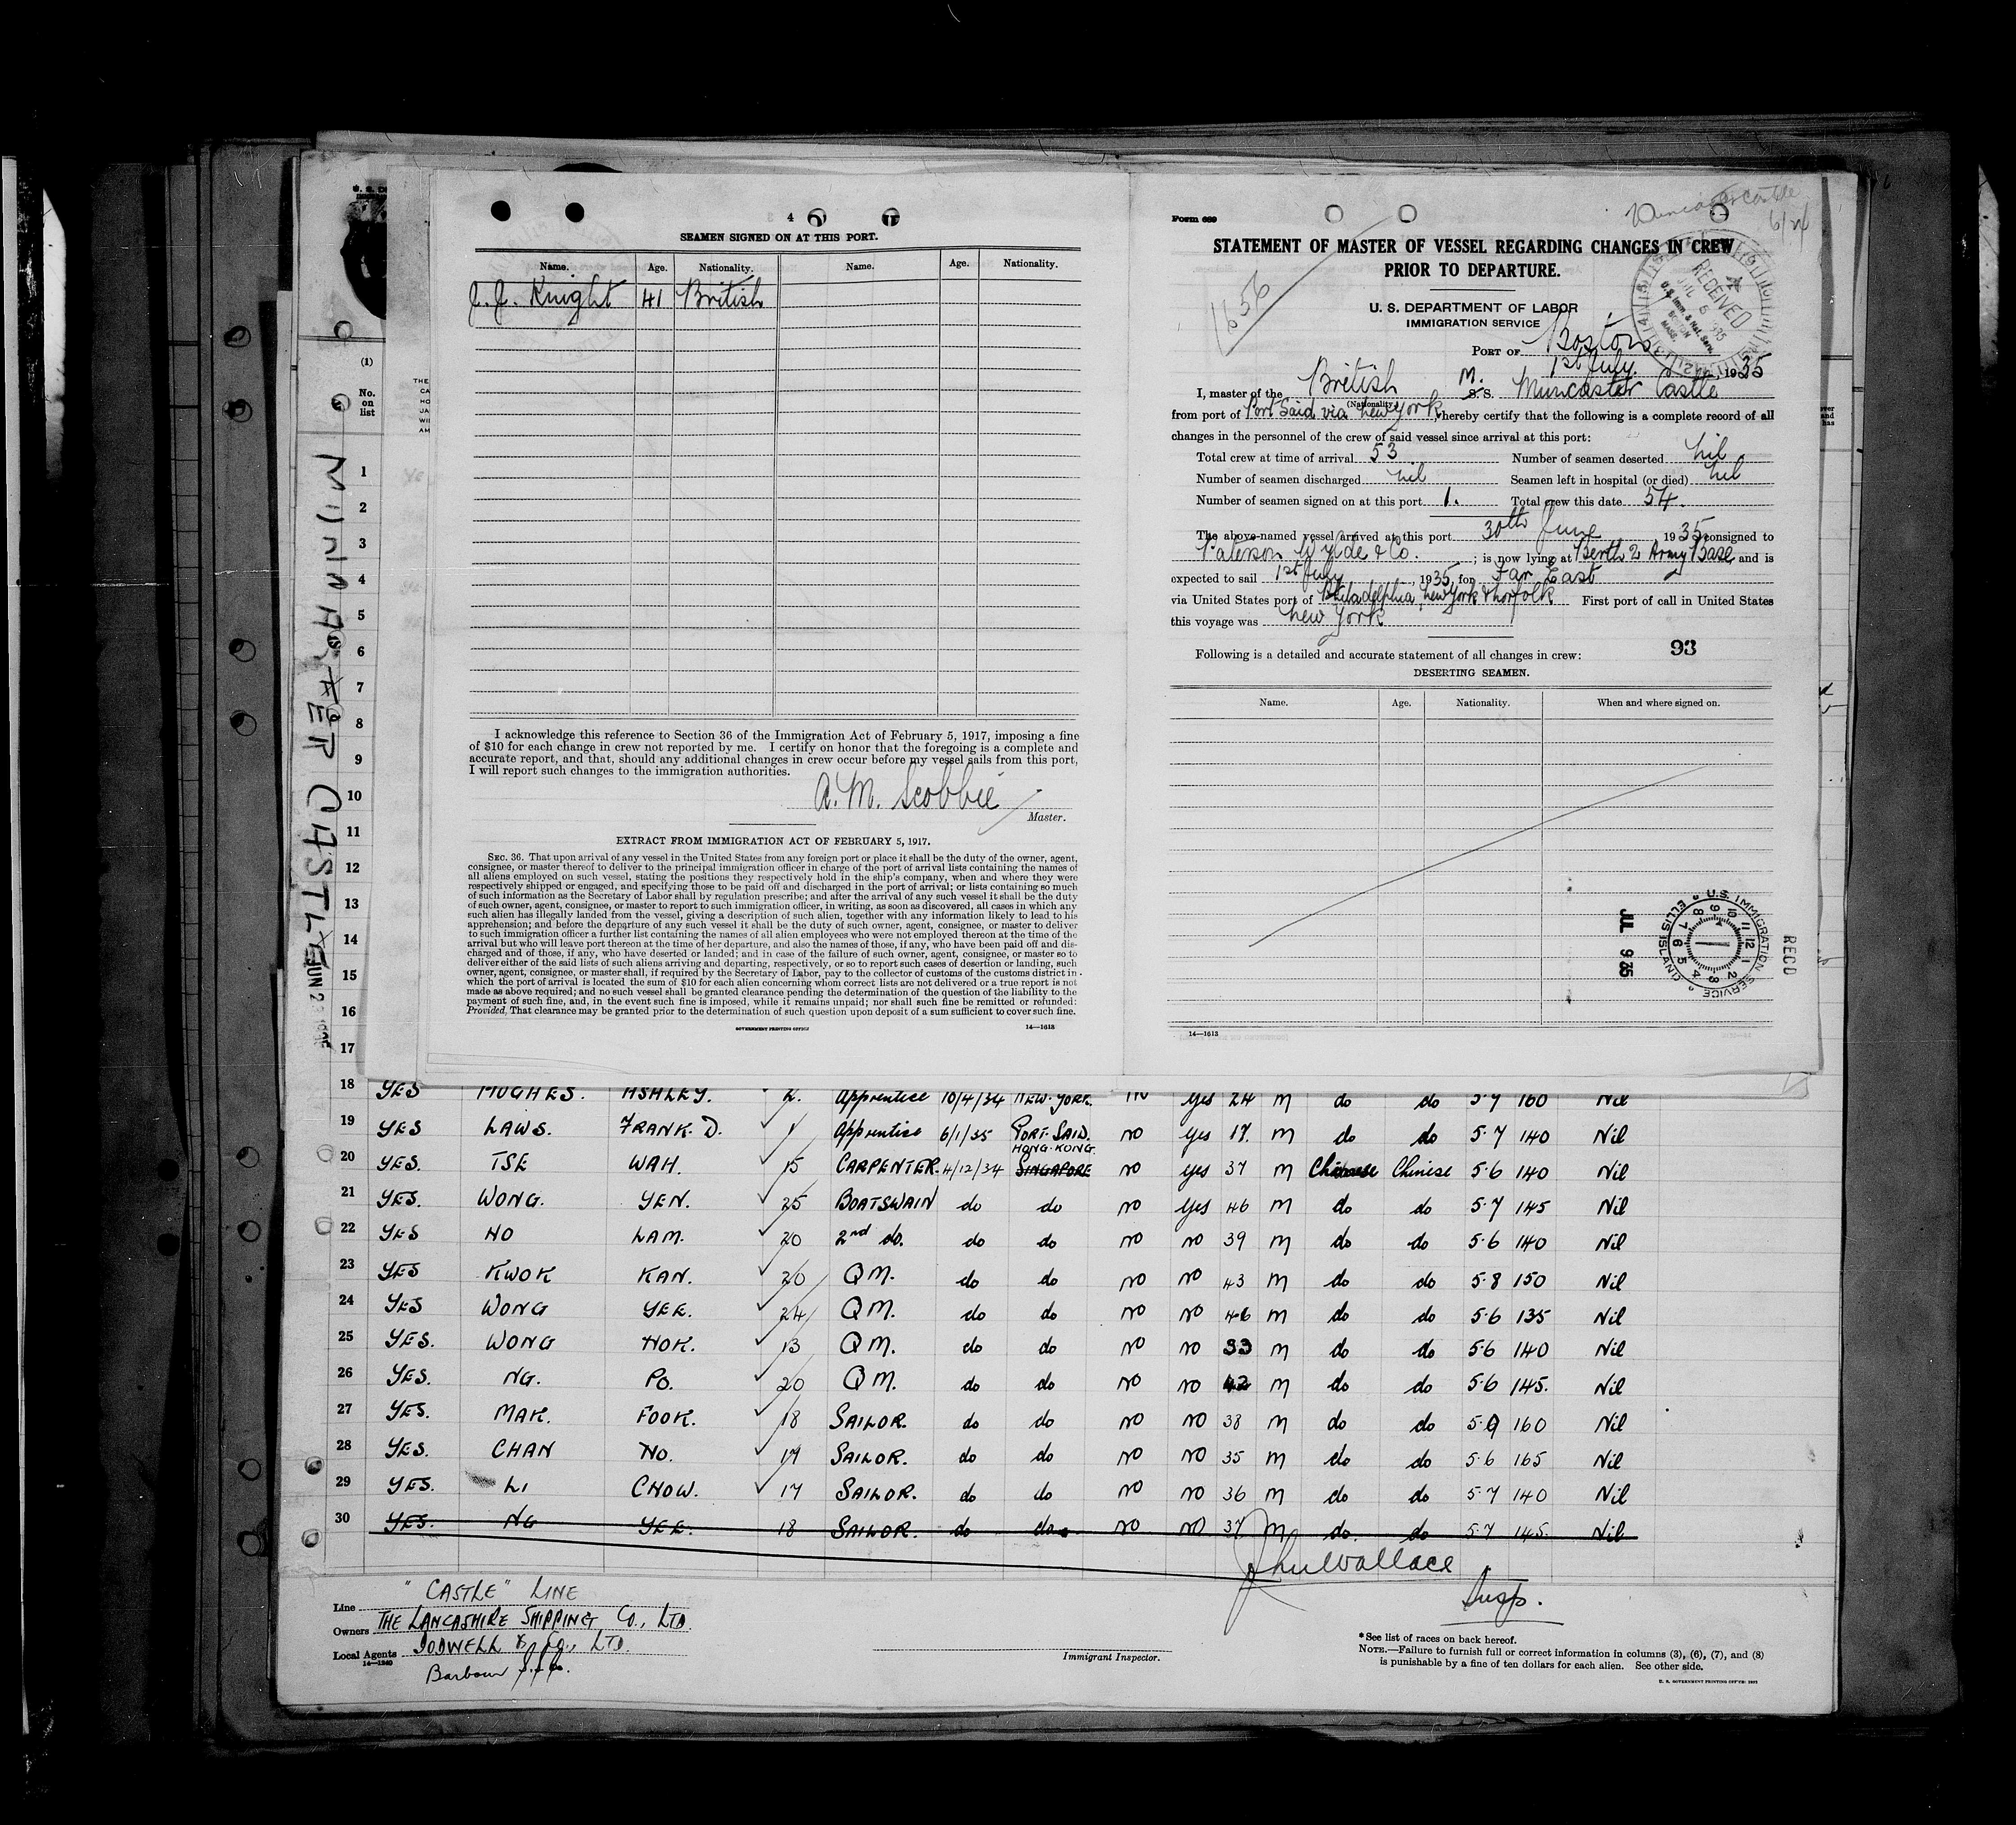 4
SEAMEN SIGNED ON AT THIS PORT.
Name. Age. Nationality. Name. Age. Nationality.
J. J. Knight 41 British
I acknowledge this reference to Section 36 of the Immigration Act of February 5, 1917, imposing a fine
of $10 for each change in crew not reported by me. I certify on honor that the foregoing is a complete and
accurate report, and that, should any additional changes in crew occur before my vessel sails from this port,
I will report such changes to the immigration authorities.
A. M. Scobbie
Master.
EXTRACT FROM IMMIGRATION ACT OF FEBRUARY 5, 1917.
SEC. 36. That upon arrival of any vessel in the United States from any foreign port or place it shall be the duty of the owner, agent,
consignee, or master thereof to deliver to the principal immigration officer in charge of the port of arrival lists containing the names of
all aliens employed on such vessel, stating the positions they respectively hold in the ship's company, when and where they were
respectively shipped or engaged, and specifying those to be paid off and discharged in the port of arrival; or lists containing so much
of such information as the Secretary of Labor shall by regulation prescribe; and after the arrival of any such vessel it shall be the duty
of such owner, agent, consignee, or master to report to such immigration officer, in writing, as soon as discovered, all cases in which any
such alien has illegally landed from the vessel, giving a description of such alien, together with any information likely to lead to his
apprehension; and before the departure of any such vessel it shall be the duty of such owner, agent, consignee, or master to deliver
to such immigration officer a further list containing the names of all alien employees who were not employed thereon at the time of the
arrival but who will leave port thereon at the time of her departure, and also the names of those, if any, who have been paid off and dis-
charged and of those, if any, who have deserted or landed; and in case of the failure of such owner, agent, consignee, or master so to
deliver either of the said lists of such aliens arriving and departing, respectively, or so to report such cases of desertion or landing, such
owner, agent, consignee, or master shall, if required by the Secretary of Labor, pay to the collector of customs of the customs district in
which the port of arrival is located the sum of $10 for each alien concerning whom correct lists are not delivered or a true report is not
made as above required; and no such vessel shall be granted clearance pending the determination of the question of the liability to the
payment of such fine, and, in the event such fine is imposed, while it remains unpaid; nor shall such fine be remitted or refunded:
Provided, That clearance may be granted prior to the determination of such question upon deposit of a sum sufficient to cover such fine.
GOVERNMENT PRINTING OFFICE 14—1613
Form 689
Muncaster Castle
6/24
STATEMENT OF MASTER OF VESSEL REGARDING CHANGES IN CREW
PRIOR TO DEPARTURE.
1656
U. S. DEPARTMENT OF LABOR
IMMIGRATION SERVICE
RECEIVED
U.S. Imm. & Nat. Serv.
BOSTON
MASS.
PORT OF Boston
1st July, 1935
I, master of the British M. S.S. Muncaster Castle
(Nationality)
from port of Port Said via New York, hereby certify that the following is a complete record of all
changes in the personnel of the crew of said vessel since arrival at this port:
Total crew at time of arrival 53 Number of seamen deserted nil
Number of seamen discharged nil Seamen left in hospital (or died) nil
Number of seamen signed on at this port 1. Total crew this date 54.
The above-named vessel arrived at this port 30th June, 1935 consigned to
Paterson Wylde & Co.; is now lying at Berth 2 Army Base, and is
expected to sail 1st July, 1935, for Far East
via United States port of Philadelphia, New York & Norfolk First port of call in United States
this voyage was New York
93
Following is a detailed and accurate statement of all changes in crew:
DESERTING SEAMEN.
Name. Age. Nationality. When and where signed on.
RECD
U.S. IMMIGRATION SERVICE ELLIS ISLAND
JUL 9 35
14—1613
(1)
No.
on
list
MUNCASTER CASTLE
1
2
3
4
5
6
7
8
9
10
11
12
13
14
15
16
17
18 YES HUGHES. ASHLEY. 2. Apprentice 10/4/34 NEW-YORK. no yes 24 m do do 5-7 160 Nil
19 YES LAWS. FRANK. D. 1 Apprentice 6/1/35 PORT-SAID. no yes 17. m do do 5-7 140 Nil
HONG-KONG.
20 YES. TSE WAH. 15 CARPENTER. 4/12/34 SINGAPORE no yes 37 m Chinese Chinese 5-6 140 Nil
21 YES. WONG. YEN. 25 BOATSWAIN do do no yes 46 m do do 5-7 145 Nil
22 YES HO LAM. 20 2nd do. do do no no 39 m do do 5-6 140 Nil
23 YES KWOK KAN. 20 QM. do do no no 43 m do do 5-8 150 Nil
24 YES WONG YEE. 24 QM. do do no no 46 m do do 5-6 135 Nil
25 YES. WONG HOK. 13 QM. do do no no 33 m do do 5-6 140 Nil
26 YES. NG. PO. 20 QM. do do no no 42 m do do 5-6 145. Nil
27 YES. MAK. FOOK. 18 SAILOR. do do no no 38 m do do 5-9 160 Nil
28 YES. CHAN HO. 17 SAILOR. do do no no 35 m do do 5-6 165 Nil
29 YES. LI CHOW. 17 SAILOR. do do no no 36 m do do 5-7 140 Nil
30 YES. NG YEE. 18 SAILOR. do do. no no 37 m do. do 5-7 145. Nil
Wallace
Insp.
Line "CASTLE" LINE
Owners THE LANCASHIRE SHIPPING Co., LTD.
Local Agents DODWELL & Co., LTD.
14—1240
Barbour
Immigrant Inspector.
*See list of races on back hereof.
NOTE.—Failure to furnish full or correct information in columns (3), (6), (7), and (8)
is punishable by a fine of ten dollars for each alien. See other side.